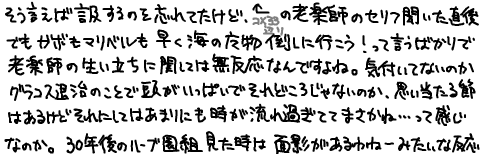 そう言えば言及するのを忘れてたけど、↑の老薬師のセリフ聞いた直後
でもガボもマリベルも早く海の魔物倒しに行こう！って言うばかりで
老薬師の生い立ちに関しては無反応なんですよね。気付いてないのか
グラコス退治のことで頭がいっぱいでそれどころじゃないのか、思い当たる節
はあるけどそれにしてはあまりにも時が流れ過ぎててまさかね…って感じ
なのか。30年後のハーブ園組見た時は面影があるわねーみたいな反応